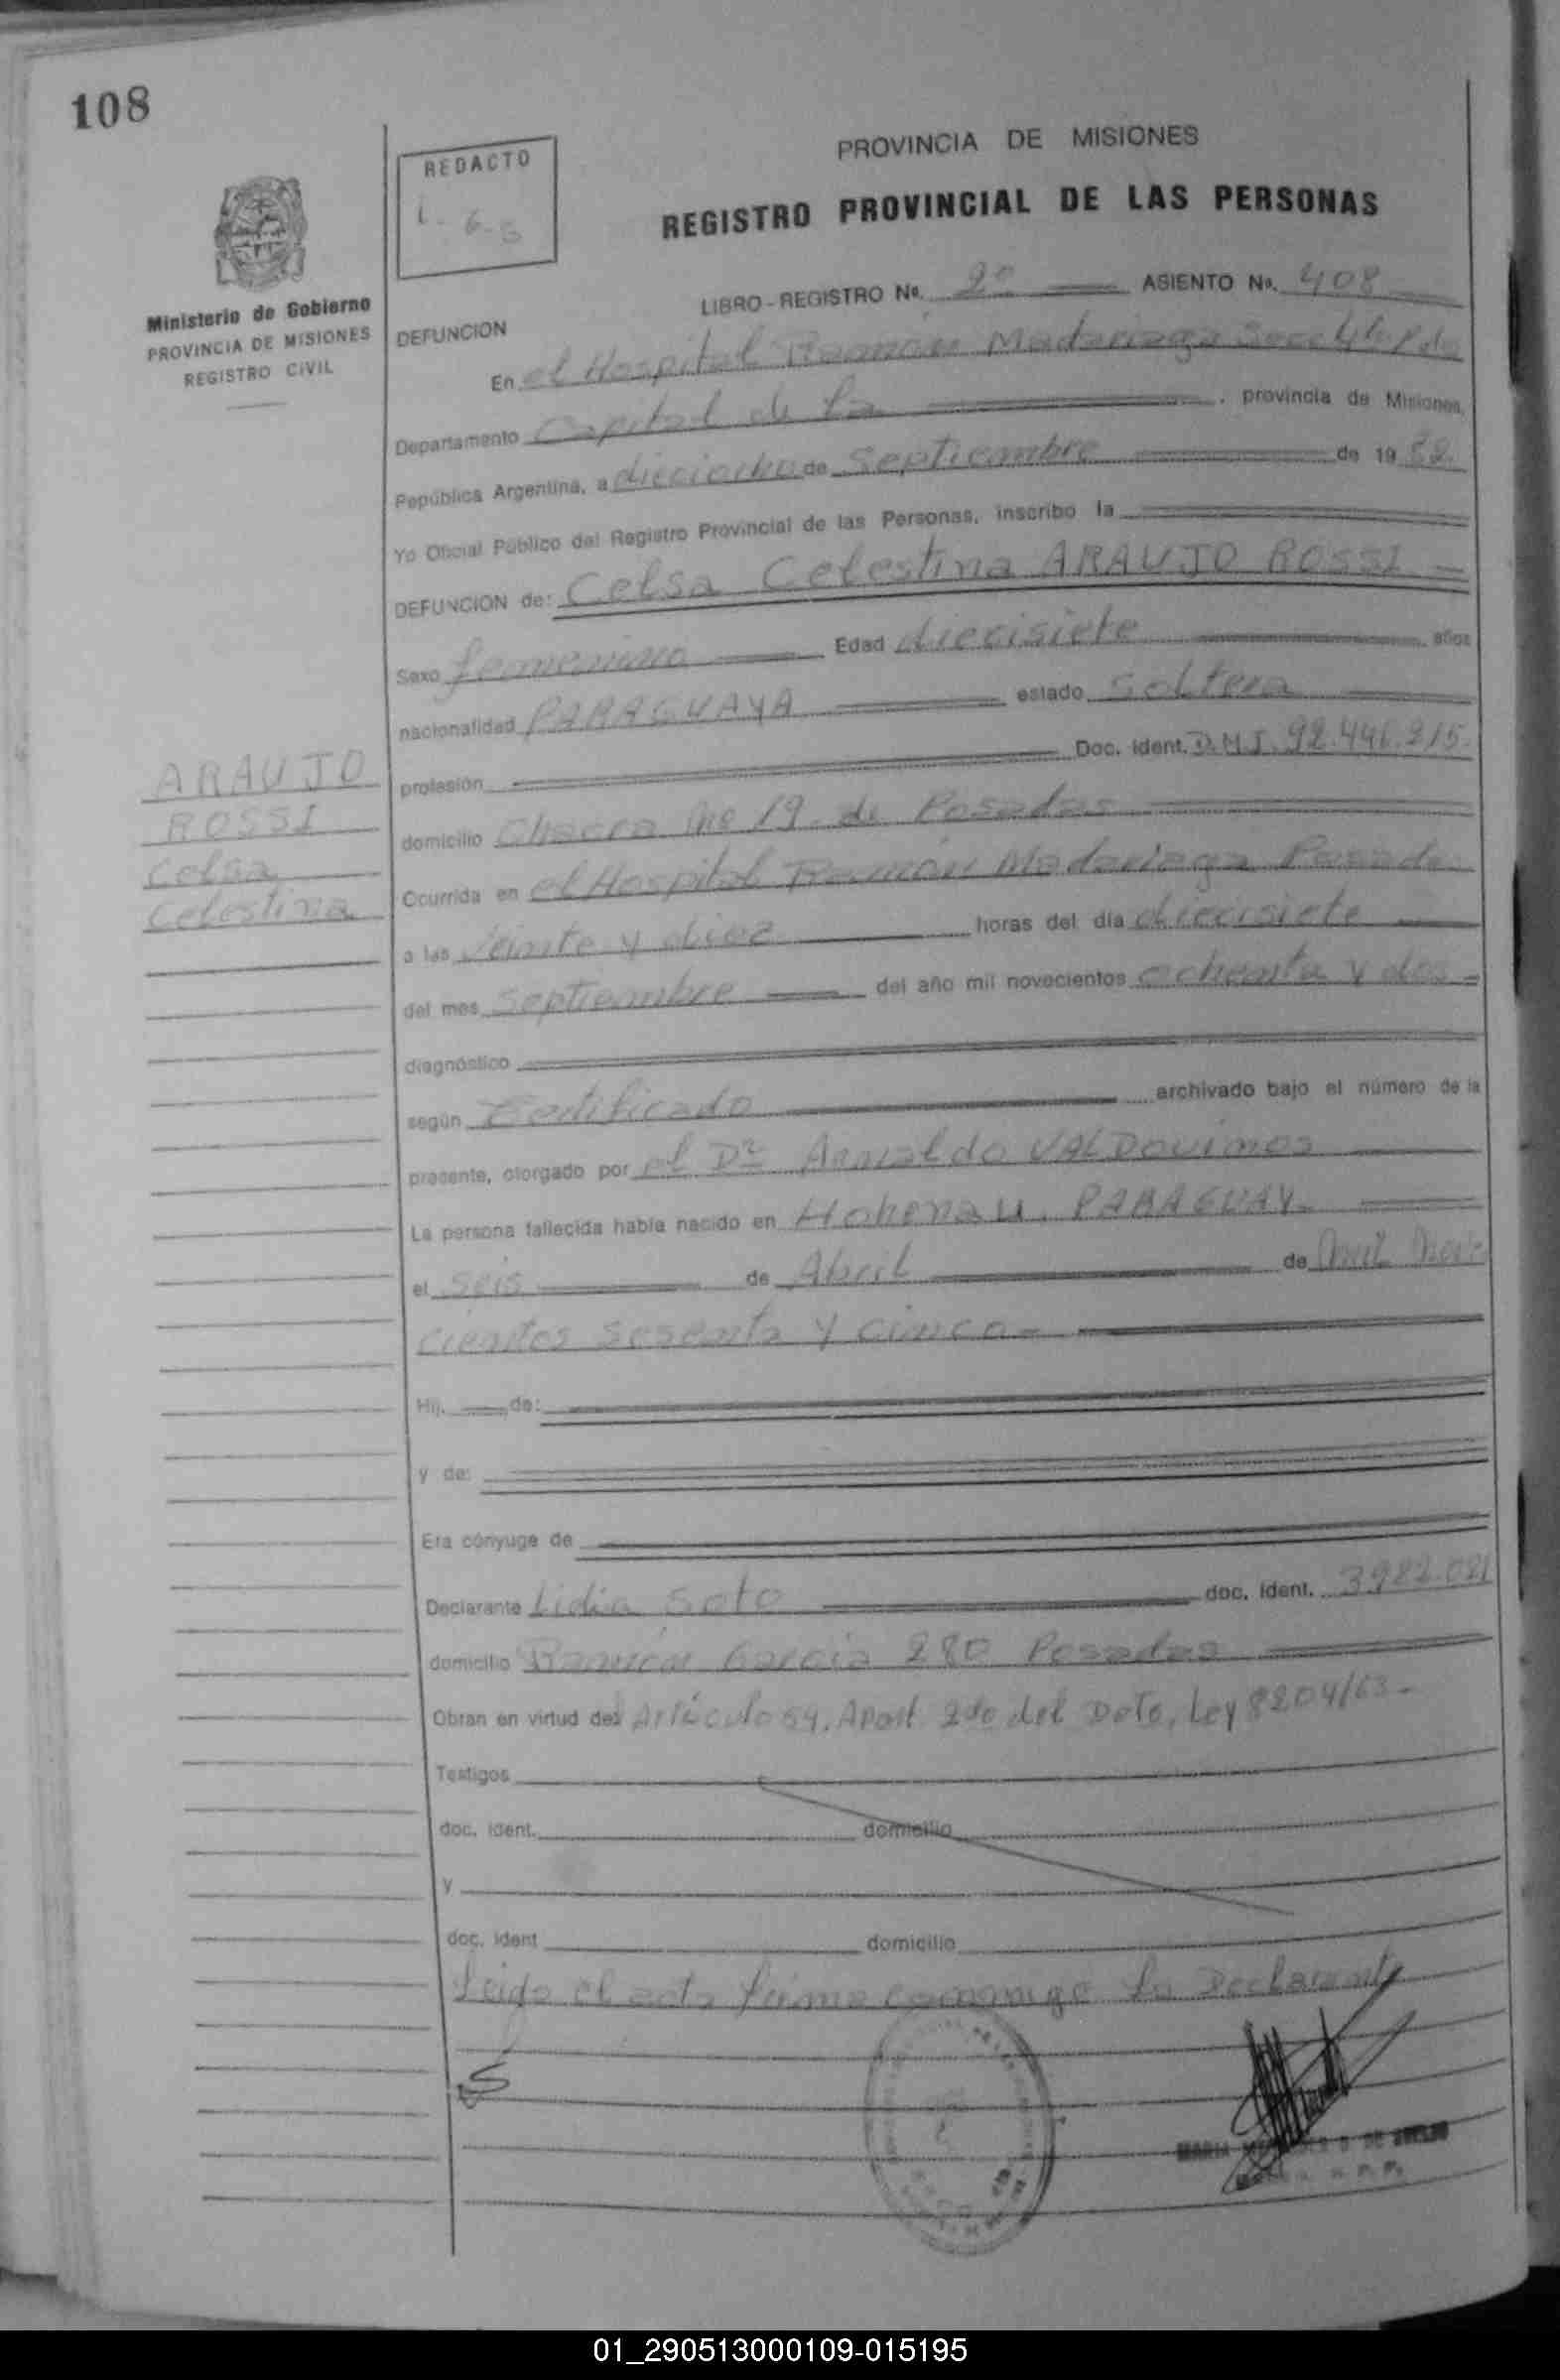 108
REDACTO
PROVINCIA DE MISIONES
REGISTRO PROVINCIAL DE LAS PERSONAS
Ministerio de Gobierno
PROVINCIA DE MISIONES
REGISTRO CIVIL
LIBRO - REGISTRO No. 2º ASIENTO No. 408
DEFUNCION
En el Hospital Ramón Madariaga Secc 4ta Pdas
Departamento Capital de la , provincia de Misiones,
República Argentina, a dieciocho de Septiembre de 19 82.
Yo Oficial Público del Registro Provincial de las Personas, inscribo la
DEFUNCION de: Celsa Celestina ARAUJO ROSSI
Sexo femenino Edad diecisiete años
nacionalidad PARAGUAYA estado Soltera
ARAUJO
ROSSI
Celsa
Celestina
profesión Doc. Ident. D.N.I. 92.446.
domicilio Chacra No 19. de Posadas
Ocurrida en el Hospital Ramón Madariaga Posadas
a las Veinte y diez horas del día diecisiete
del mes Septiembre del año mil novecientos ochenta y dos
diagnóstico
según Certificado archivado bajo el número de la
presente, otorgado por el Dr Arnaldo VALDOVINOS
La persona fallecida había nacido en Hohenau. PARAGUAY.
el seis de Abril de mil nove
cientos sesenta y cinco-
Hij. de:
y de:
Era cónyuge de
Declarante Lidia Soto doc. ident. 3.982.021
domicilio Ramón García 280 Posadas
Obran en virtud del Artículo 59. Apart. 2do del Dcto, Ley 8204/63-
Testigos
doc. ident. domicilio
y
doc. ident domicilio
Leída el acta firma conmigo la Declarante
MARIA DE
01_290513000109-015195